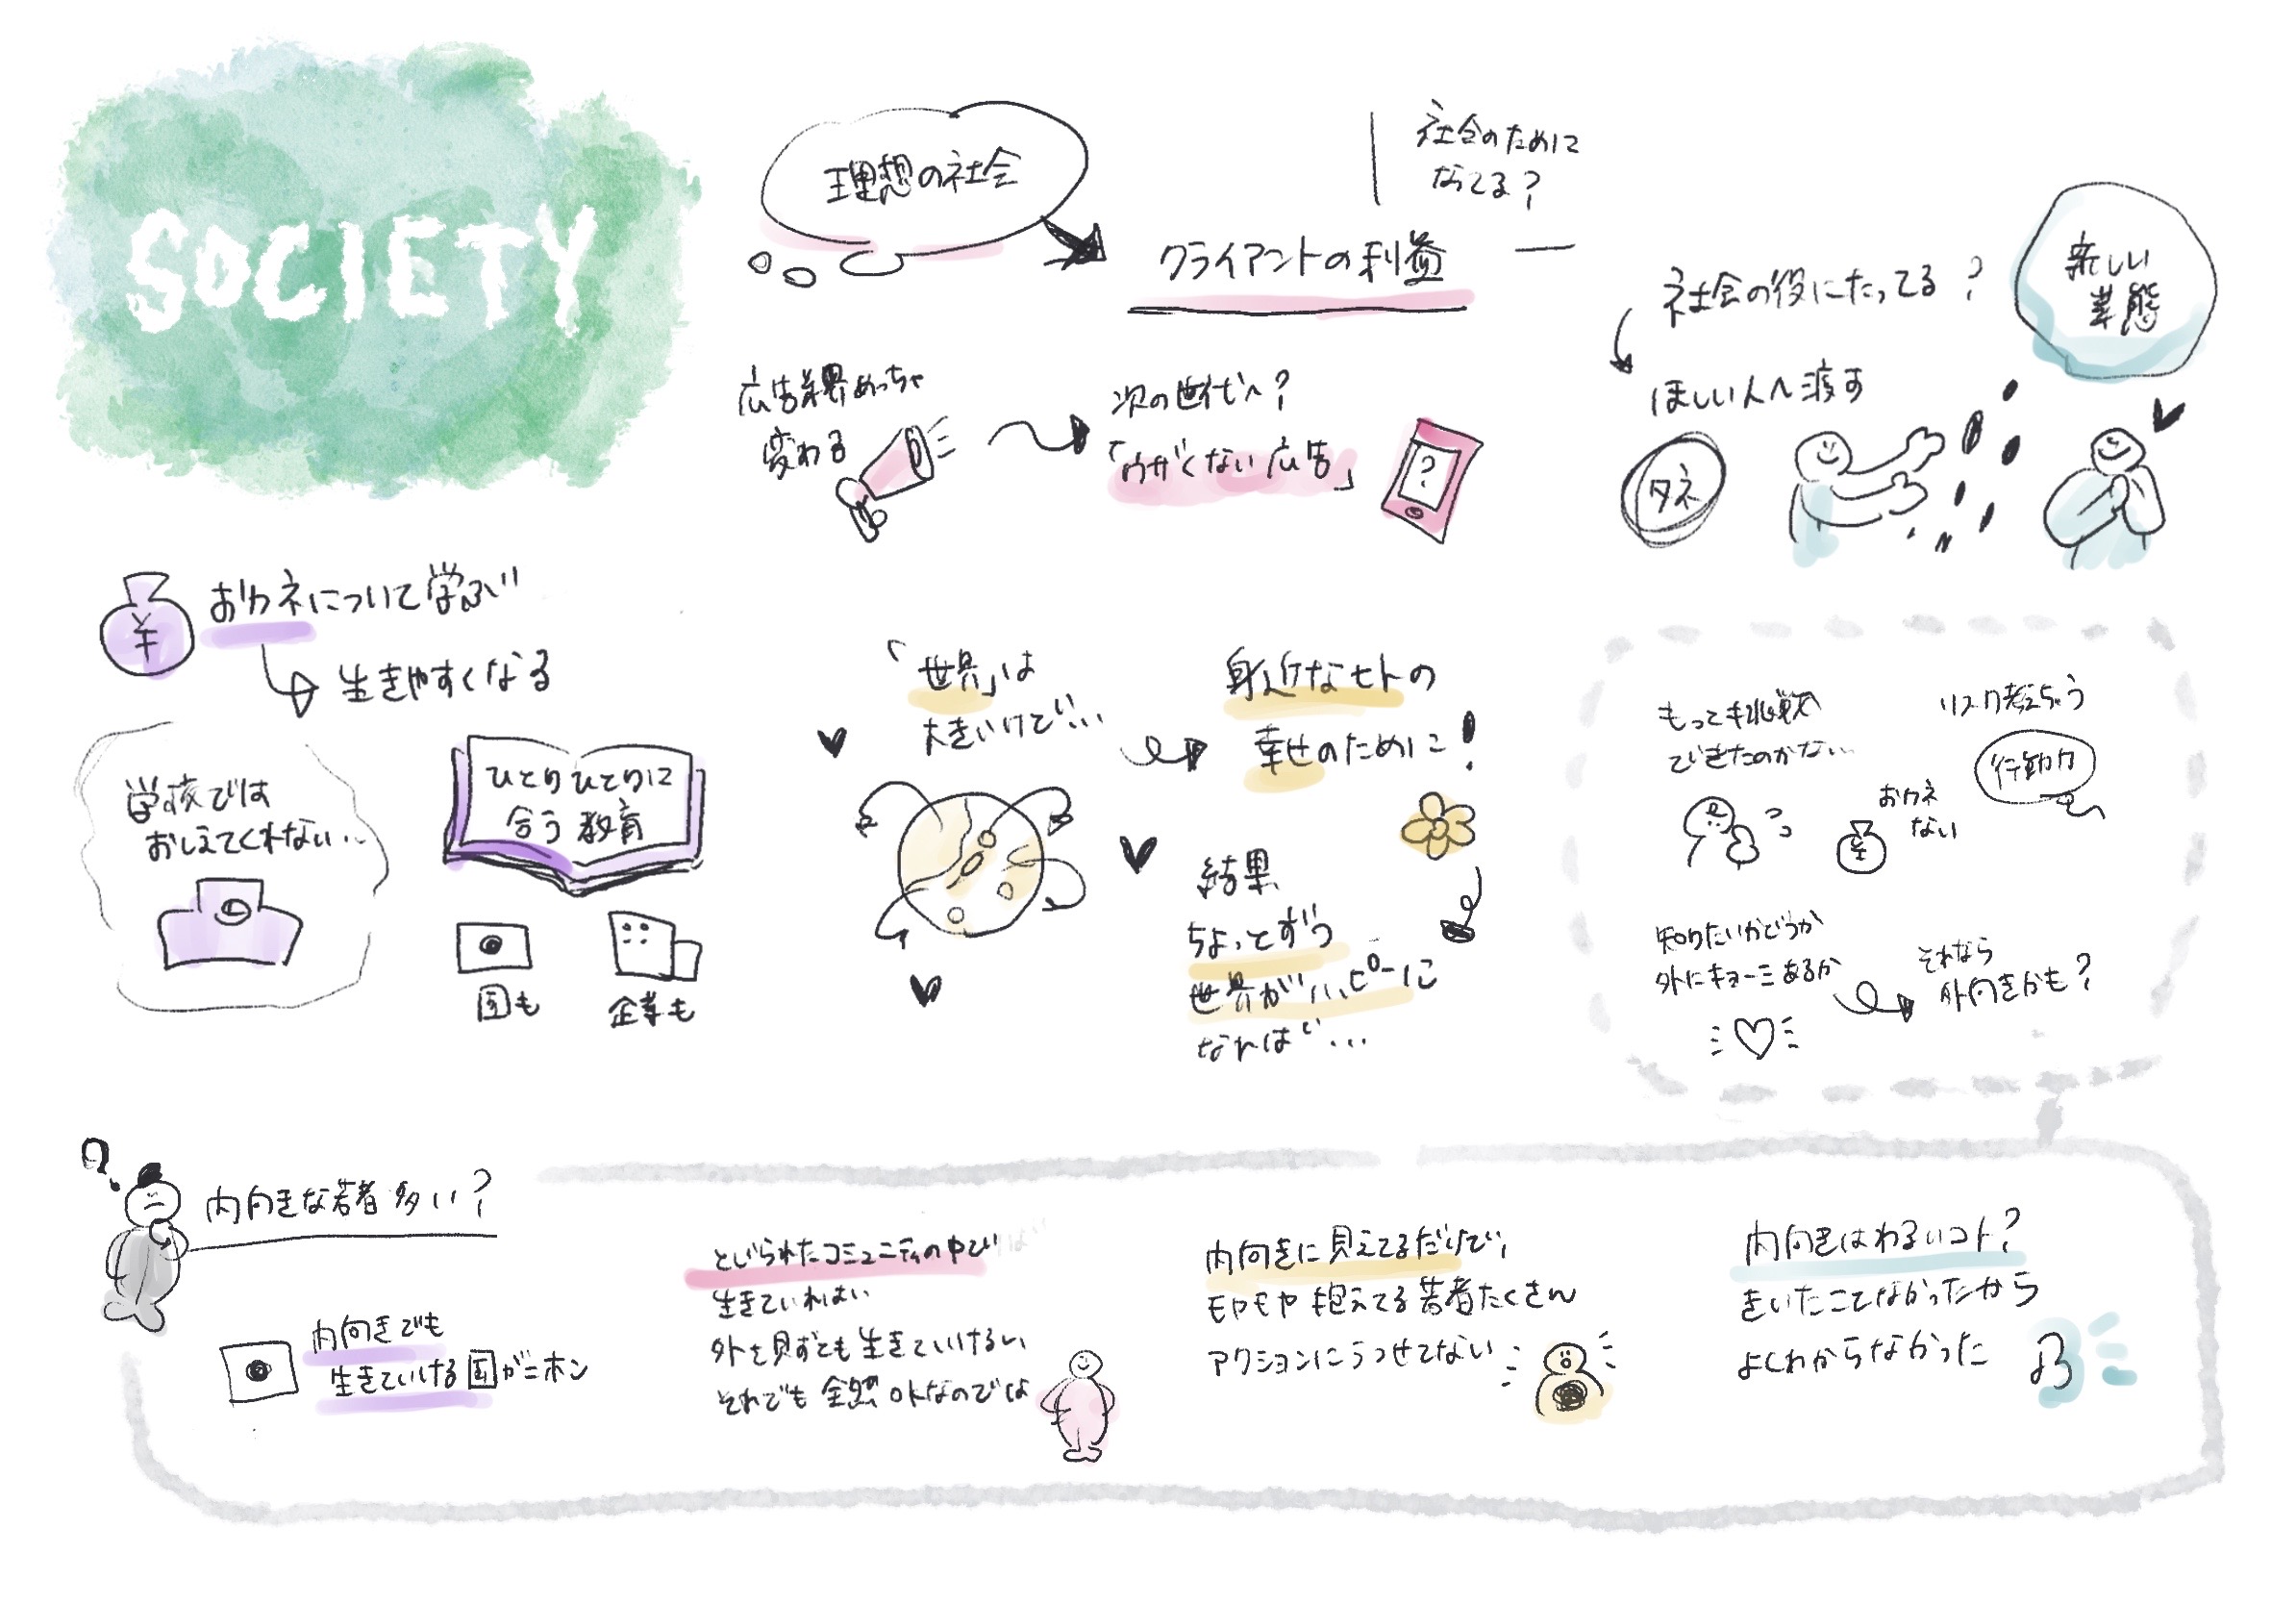 SOCIETY
理想の社会
クライアントの利益
社会のために
なってる?
広告業界めっちゃ
変わる
次の世代へ?
「うがくない広告」
?
社会の役にたってる?
新しい
業態
ほしい人へ渡す
タネ
¥
おカネについて学ぶ
生きやすくなる
学校では
おしえてくれない…
ひとりひとりに
合う教育
国も
企業も
「世界」は
大きいけど…
身近なヒトの
幸せのために!
結果
ちょっとずつ
世界がハッピーに
なれば…
もっと挑戦
できたのかな…
リスク考えちゃう
行動力
おカネ
ない
¥
知りたいかどうか
外にキョーミあるか
それなら
外向きかも?
内向きな若者多い?
内向きでも
生きていける国がニホン
とじられたコミュニティの中で
生きていればいい
外を見ずとも生きていけるし
それでも全然OKなのでは
内向きに見えてるだけで、
モヤモヤ抱えてる若者たくさん
アクションにうつせてない
内向きはわるいコト?
きいたことなかったから
よくわからなかった